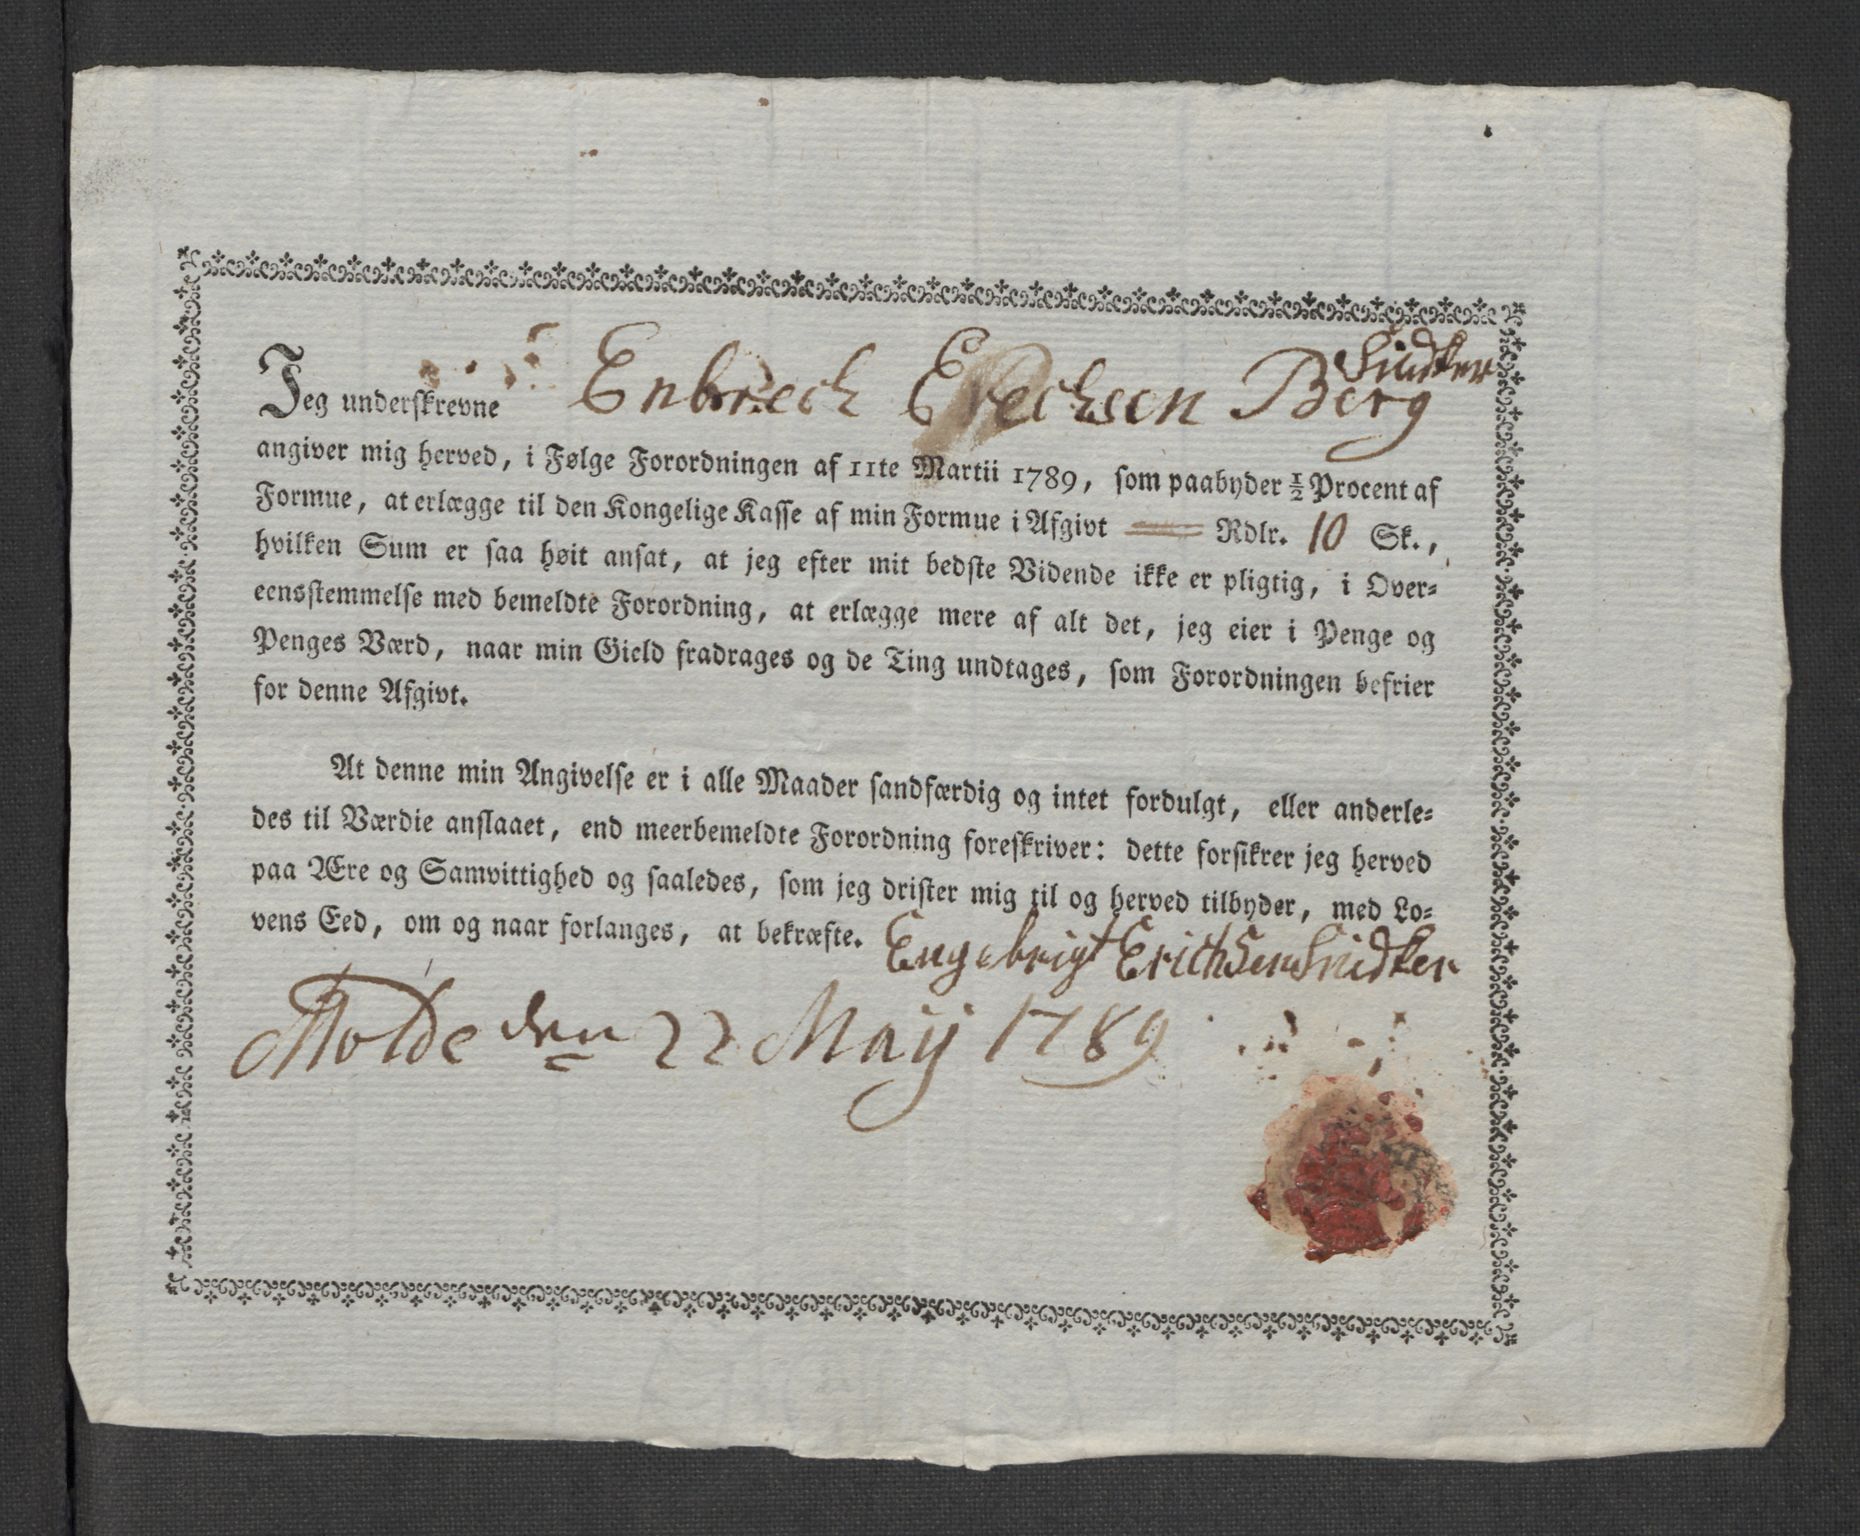 Snidker
Jeg underskrevne Enbrech Erechsen Berg
angiver mig herved, i Følge Forordningen af 11te Martii 1789, som paabyder ½ Procent af
Formue, at erlægge til den Kongelige Kasse af min Formue i Afgivt Rdlr. 10 Sk.,
hvilken Sum er saa høit ansat, at jeg efter mit bedste Vidende ikke er pligtig, i Over-
eensstemmelse med bemeldte Forordning, at erlægge mere af alt det, jeg eier i Penge og
Penges Værd, naar min Gield fradrages og de Ting undtages, som Forordningen befrier
for denne Afgivt.
At denne min Angivelse er i alle Maader sandfærdig og intet fordulgt, eller anderle-
des til Værdie anslaaet, end meerbemeldte Forordning foreskriver: dette forsikrer jeg herved
paa Ære og Samvittighed og saaledes, som jeg drister mig til og herved tilbyder, med Lo-
vens Eed, om og naar forlanges, at bekræfte.
Engebrigt Erichsen Snidker
Molde den 22 Maij 1789